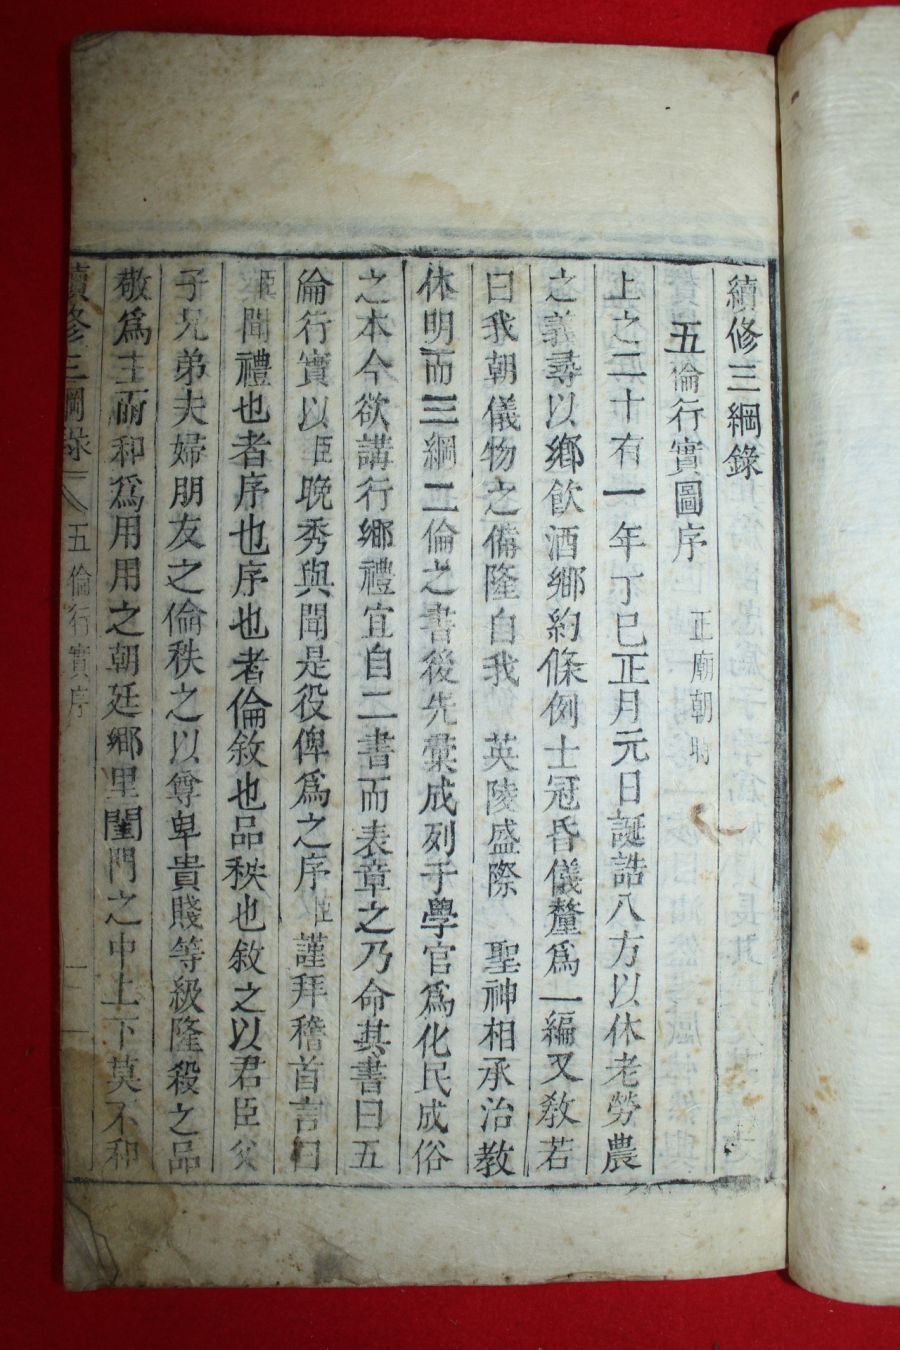 續修三綱錄
五倫行實圖序 正廟朝時
上之二十有一年丁巳正月元日誕誥八方以休老勞農
之義尋以鄕飮酒鄕約條例士冠昏儀釐爲一編又敎若
曰我朝儀物之備隆自我 英陵盛際 聖神相承治敎
休明而三綱二倫之書後先彙成列于學官爲化民成俗
之本今欲講行鄕禮宜自二書而表章之乃命其書曰五
倫行實以臣晩秀與聞是役俾爲之序臣謹拜稽首言曰
臣聞禮也者序也序也者倫敘也品秩也敘之以君臣父
子兄弟夫婦朋友之倫秩之以尊卑貴賤等級隆殺之品
敬爲主而和爲用用之朝廷鄕里閨門之中上下莫不和
續修三綱錄 五倫行實序 一